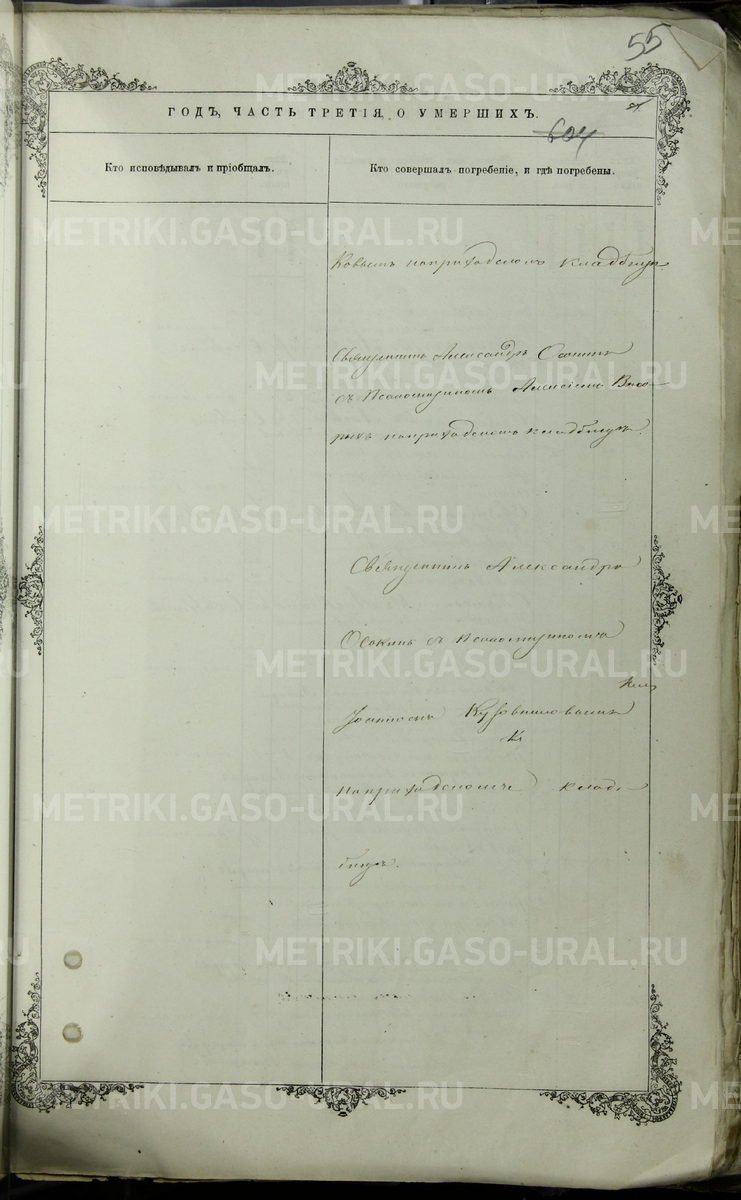 55
604
ГОДЪ, ЧАСТЬ ТРЕТІЯ, О УМЕРШИХЪ.
Кто исповѣдывалъ и пріобщалъ.
Кто совершалъ погребеніе, и гдѣ погребены.
наприходскомъ кладбищѣ
Священникъ Александръ Осокинъ
съ Псаломщикомъ Алексіемъ
наприходскомъ кладбищѣ.
Священникъ Александръ
Осокинъ съ Псаломщикомъ
Іоанномъ
наприходскомъ клад
бищѣ.
METRIKI.GASO-URAL.RU